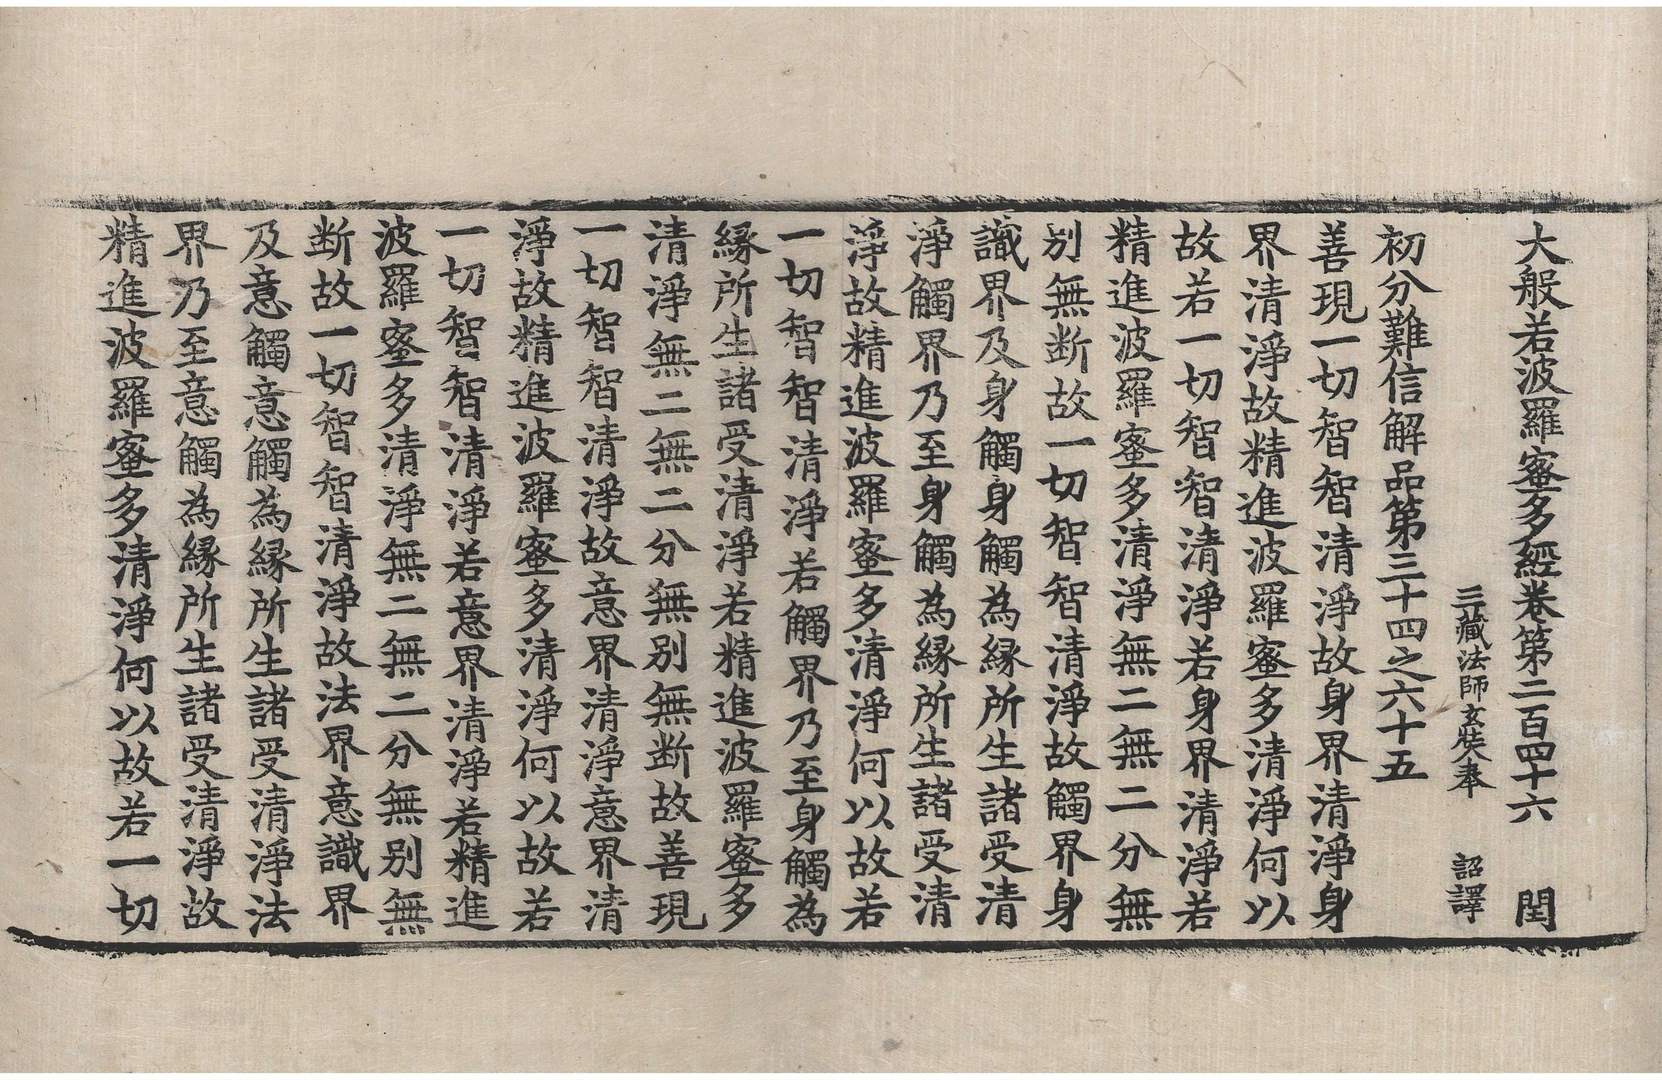 大般若波羅蜜多經卷第二百四十六　閏
三藏法師玄奘奉　詔譯
初分難信解品第三十四之六十五
善現一切智智清淨故身界清淨身
界清淨故精進波羅蜜多清淨何以
故若一切智智清淨若身界清淨若
精進波羅蜜多清淨無二無二分無
別無断故一切智智清淨故觸界身
識界及身觸身觸為緣所生諸受清
淨觸界乃至身觸為緣所生諸受清
淨故精進波羅蜜多清淨何以故若
一切智智清淨若觸界乃至身觸為
緣所生諸受清淨若精進波羅蜜多
清淨無二無二分無別無断故善現
一切智智清淨故意界清淨意界清
淨故精進波羅蜜多清淨何以故若
一切智智清淨若意界清淨若精進
波羅蜜多清淨無二無二分無別無
断故一切智智清淨故法界意識界
及意觸意觸為緣所生諸受清淨法
界乃至意觸為緣所生諸受清淨故
精進波羅蜜多清淨何以故若一切